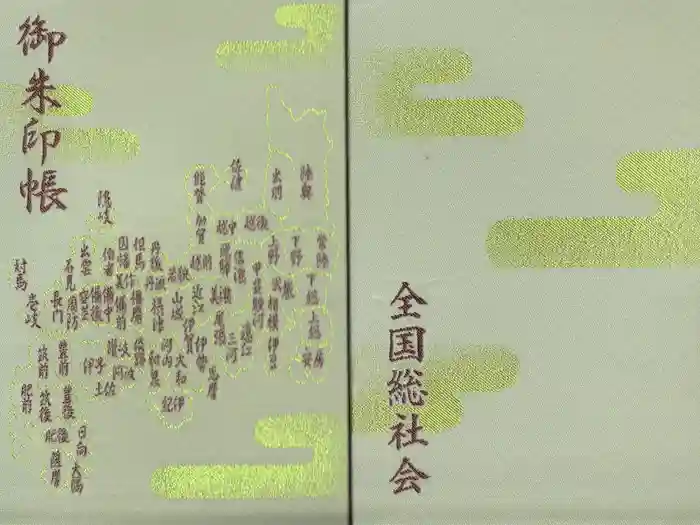 御朱印帳
陸奥
出羽
佐渡
能登
加賀
越中
越後
隠岐
常陸
下野
上野
信濃
飛騨
越前
若狭
丹後
丹波
但馬
因幡
伯耆
出雲
石見
対馬
壱岐
下総
上総
安房
武蔵
相模
伊豆
甲斐
駿河
遠江
三河
尾張
美濃
近江
山城
伊賀
伊勢
志摩
大和
紀伊
河内
和泉
摂津
播磨
美作
備前
備中
備後
安芸
周防
長門
淡路
阿波
讃岐
伊予
土佐
豊前
豊後
筑前
筑後
肥前
肥後
日向
大隅
薩摩
全国総社会